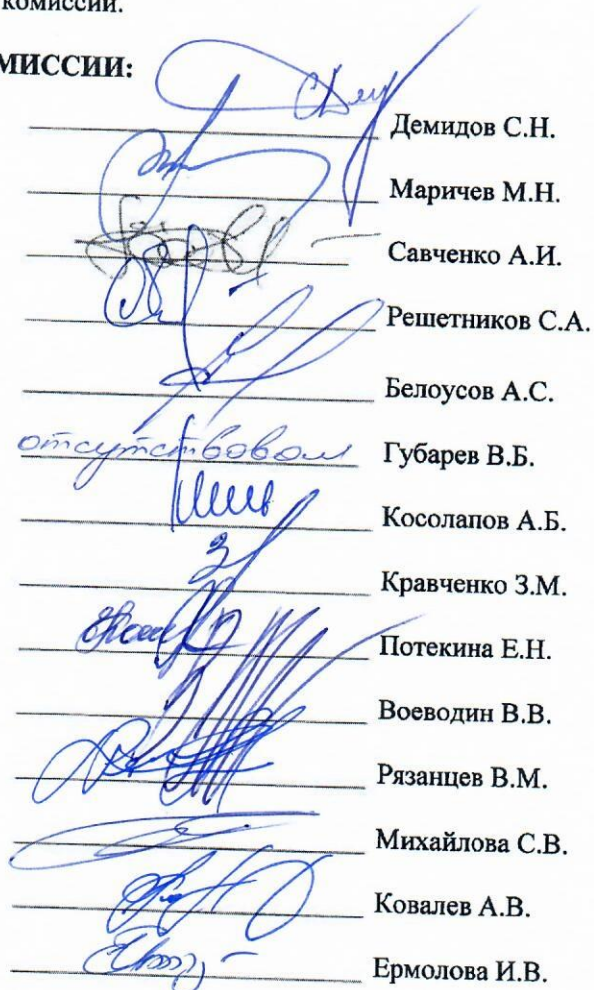 комиссии.
МИССИИ:
Демидов С.Н.
Маричев М.Н.
Савченко А.И.
Решетников С.А.
Белоусов А.С.
отсутствовал Губарев В.Б.
Косолапов А.Б.
Кравченко З.М.
Потекина Е.Н.
Воеводин В.В.
Рязанцев В.М.
Михайлова С.В.
Ковалев А.В.
Ермолова И.В.